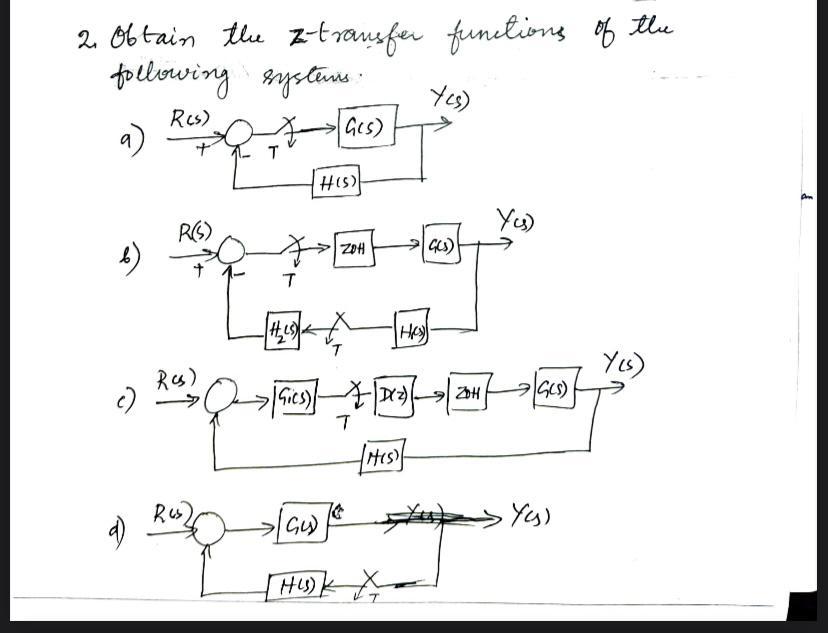 2. Obtain the z-transfer functions of the
following systems.
a) R(s) + - T G(s) Y(s)
H(s)
b) R(s) + - T ZOH G(s) Y(s)
H₂(s) T H(s)
c) R(s) G₁(s) T D(z) ZOH G(s) Y(s)
H(s)
d) R(s) G(s) Y(s)
H(s) T